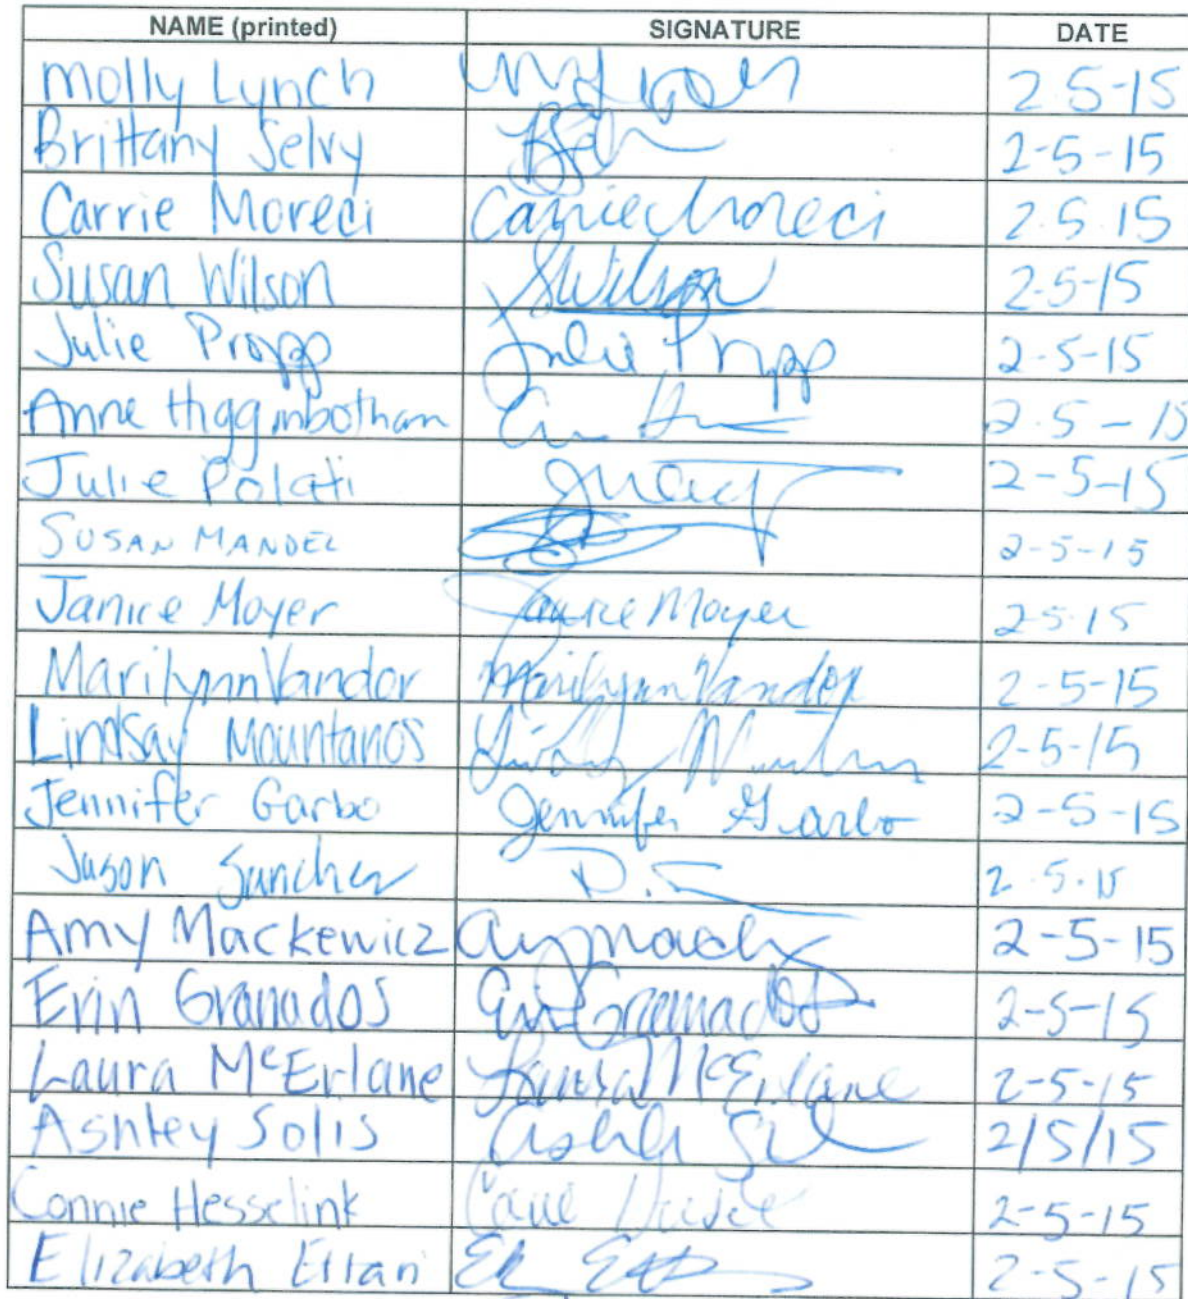 NAME (printed) SIGNATURE DATE
Molly Lynch 2-5-15
Brittany Selvy 2-5-15
Carrie Moreci Carrie Moreci 2.5.15
Susan Wilson SWilson 2-5-15
Julie Propp Julie Propp 2-5-15
Anne Higginbotham 2.5-15
Julie Polati 2-5-15
SUSAN MANDEL 2-5-15
Janice Moyer Janice Moyer 2-5-15
Marilynn Vandor Marilynn Vandor 2-5-15
Lindsay Mountanos 2-5-15
Jennifer Garbo Jennifer Garbo 2-5-15
Jason Sanchez 2.5.15
Amy Mackewicz 2-5-15
Erin Granados Erin Granados 2-5-15
Laura McErlane Laura McErlane 2-5-15
Ashley Solis 2/5/15
Connie Hesselink 2-5-15
Elizabeth 2-5-15